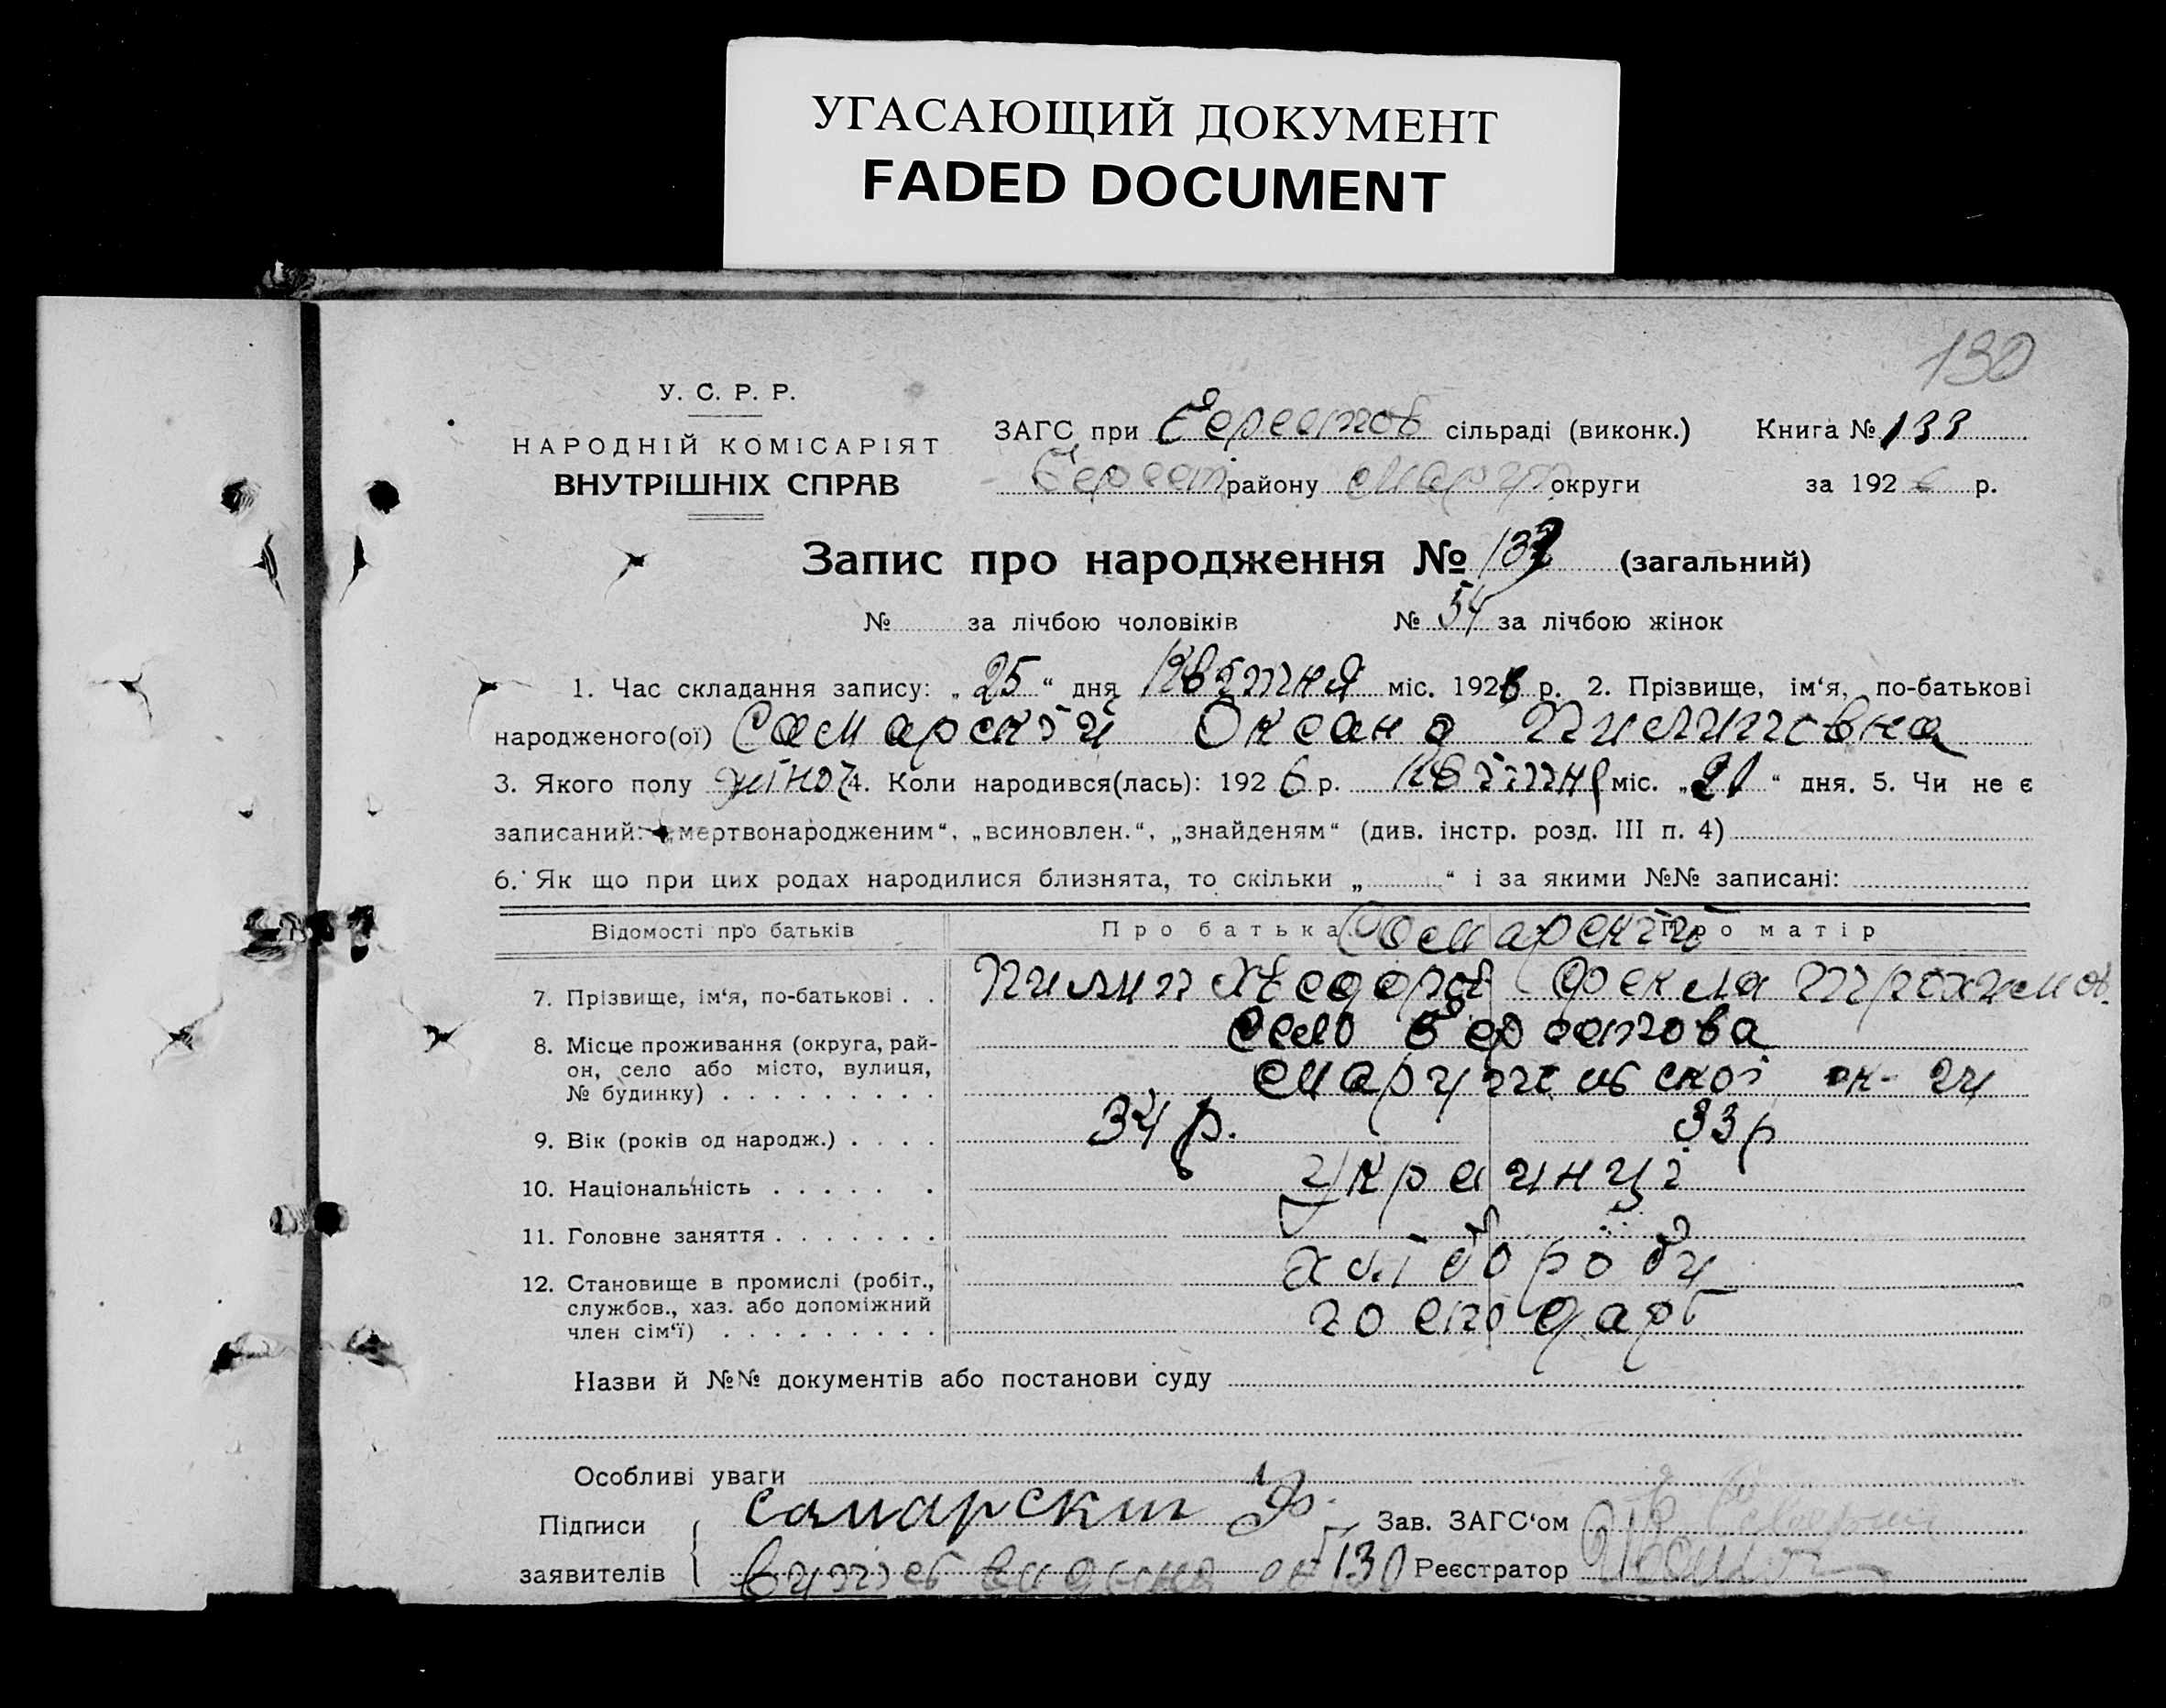 УГАСАЮЩИЙ ДОКУМЕНТ
FADED DOCUMENT
130
У. С. Р. Р.
НАРОДНІЙ КОМІСАРІЯТ
ВНУТРІШНІХ СПРАВ
ЗАГС при Берестов сільраді (виконк.) Книга № 133
Берест району Маріуп округи за 1926 р.
Запис про народження № 132 (загальний)
№ за лічбою чоловіків № 54 за лічбою жінок
1. Час складання запису: „25“ дня Квітня міс. 1926 р. 2. Прізвище, ім‘я, по-батькові
народженого(ої) Самарскій Оксана Пилиповна
3. Якого полу жіно 4. Коли народився(лась): 1926 р. Квітня міс. „21“ дня. 5. Чи не є
записаний: „мертвонародженим“, „всиновлен.“, „знайденям“ (див. інстр. розд. III п. 4)
6. Як що при цих родах народилися близнята, то скільки „ “ і за якими №№ записані:
Відомості про батьків Про батька Про матір
Самарскій
7. Прізвище, ім‘я, по-батькові . . Пилип Хведоров Фекла Трохимов.
8. Місце проживання (округа, рай- село Берестова
он, село або місто, вулиця, Марупільскоі ок-ги
№ будинку) . . . . . . . . .
9. Вік (років од народж.) . . . . 34 р. 33 р
10. Національність . . . . . . украинці
11. Головне заняття . . . . . . . хліброби
12. Становище в промислі (робіт.,
службов., хаз. або допоміжний господарь
член сім‘ї) . . . . . . . . .
Назви й №№ документів або постанови суду
Особливі уваги
Підписи Самарский Ф. Зав. ЗАГС‘ом
заявителів 130 Реєстратор